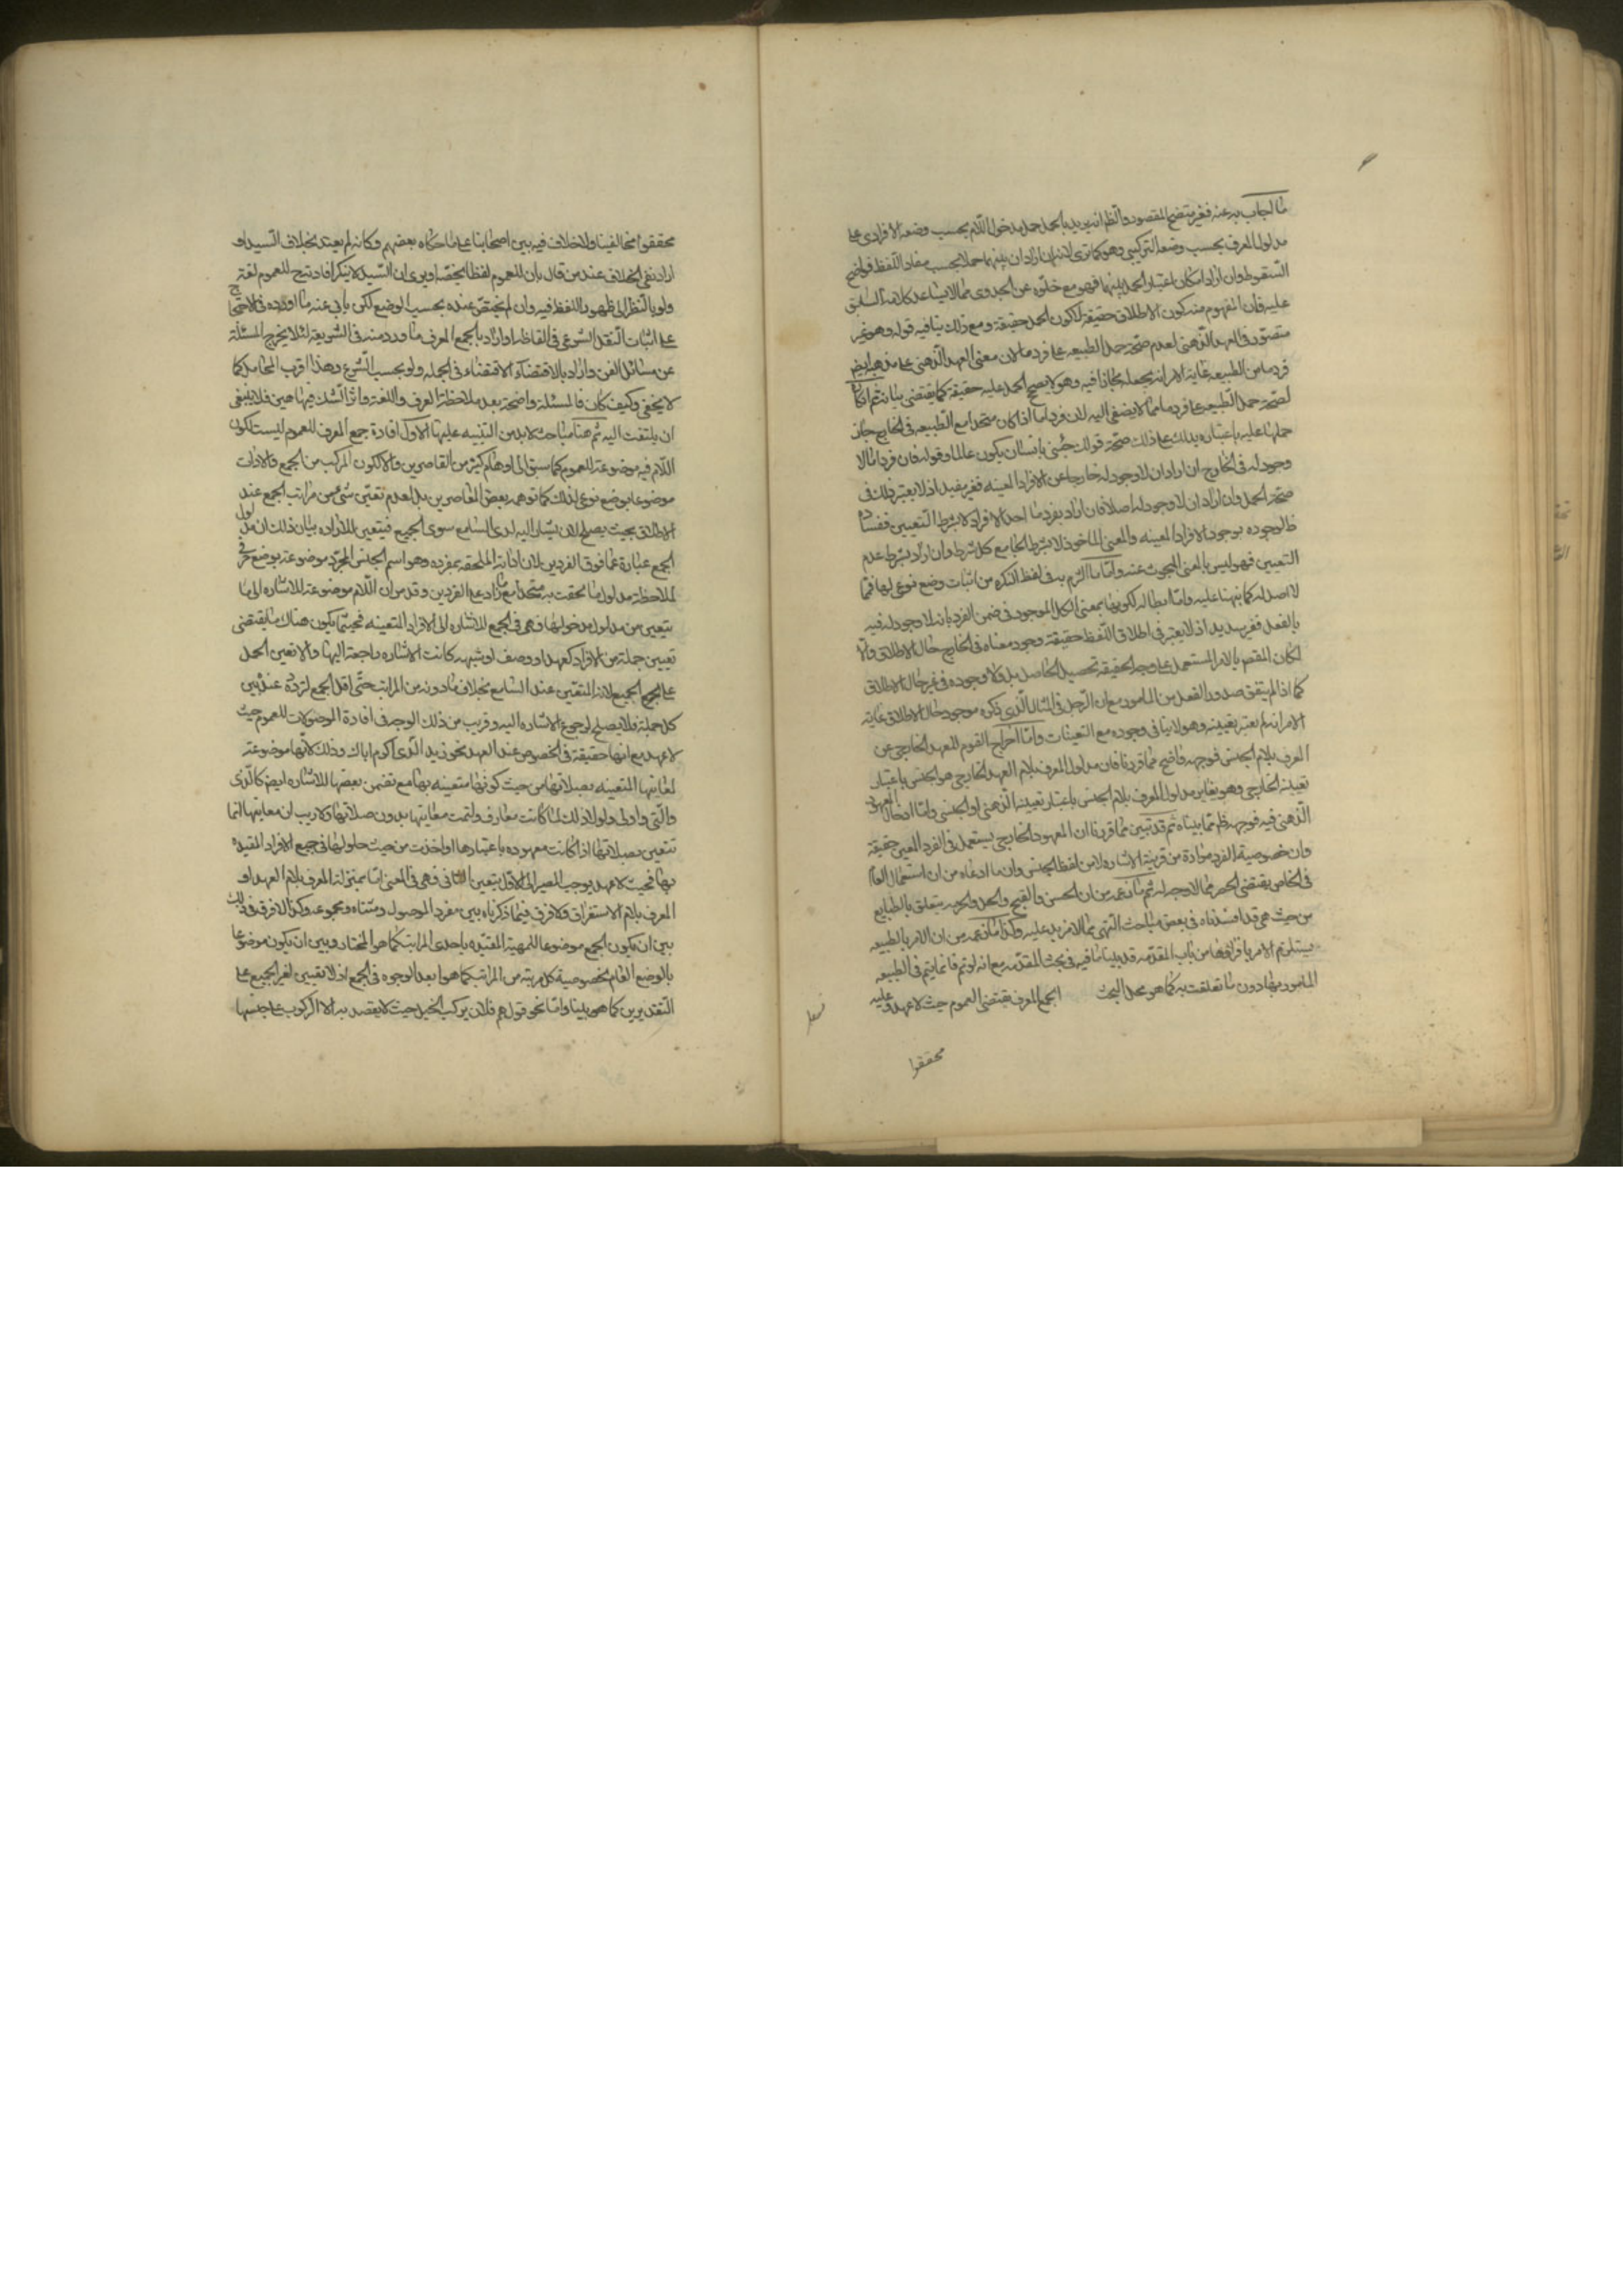 ما اجاب به عنه فغير متضح المقصود والظ انه يريد بالحمل حمل مدخول اللام بحسب وضعه الافرادى على
مدلول المعرف بحسب وضعه التركيبى وهو كما ترى لانه ان اراد ان بينهما حملا بحسب مفاد اللفظ فواضح
السقوط وان اراد امكان اعتبار الحمل بينهما فهو مع خلوه عن الجدوى مما لا يساعد كلامه السابق
عليه فان المفهوم منه كون الاطلاق حقيقة لكون الحمل حقيقة ومع ذلك ينافيه قوله وهو غير
متصور فى العهد الذهنى لعدم صحة حمل الطبيعه على فرد ما لان معنى العهد الذهنى على مذهبه ايض
فرد ما من الطبيعه غاية الامر انه يجعله مجازا فيه وهو لا يصحح الحمل عليه حقيقة كما يقتضى بيانه ثم انكاره
لصحة حمل الطبيعه على فرد ما مما لا يصغى اليه لان فردا ما اذا كان متحدا مع الطبيعه فى الخارج جاز
حملها عليه باعتباره يدلك على ذلك صحة قولك جئنى بانسان يكون عالما وقوله فان فردا ما لا
وجود له فى الخارج ان اراد ان لا وجود له خارجا عن الافراد المعينه فغير مفيد اذ لا يعتبر ذلك فى
صحة الحمل وان اراد ان لا وجود له اصلا فان اراد بفرد ما احد الافراد لا بشرط التعيين ففساده
ظ لوجوده بوجود الافراد المعينه والمعنى الماخوذ لا بشرط الجامع كل شرط وان اراد بشرط عدم
التعيين فهو ليس بالمعنى المبحوث عنه واما ما التزم به فى لفظ النكره من اثبات وضع نوعى لها فمما
لا اصل له كما نبهنا عليه واما ابطاله لكونها بمعنى الكلى الموجود فى ضمن الفرد بانه لا وجود له فيه
بالفعل فغير سديد اذ لا يعتبر فى اطلاق اللفظ حقيقة وجود معناه فى الخارج حال الاطلاق والا
لكان المقص بالامر المستعمل على وجه الحقيقة تحصيل الحاصل بل ولا وجوده فى غير حال الاطلاق
كما اذا لم يتفق صدور الفعل من المامور مع ان الرجل فى المثال الذى ذكره موجود حال الاطلاق غاية
الامر انه لم يعتبر بعينه وهو لا ينافى وجوده مع التعينات واما اخراج القوم للعهد الخارجى عن
المعرف بلام الجنس فوجهه واضح مما قررنا فان مدلول المعرف بلام العهد الخارجى هو الجنس باعتبار
تعينه الخارجى وهو يغاير مدلول المعرف بلام الجنس باعتبار تعينه الذهنى او الجنسى واما ادخال المعهود
الذهنى فيه فوجهه ظ مما بيناه ثم قد تبين مما قررنا ان المعهود الخارجى يستعمل فى الفرد المعين حقيقة
وان خصوصية الفرد مرادة من قرينة الاشاره لا من لفظ الجنس وان ما ادعاه من ان استعمال العام
فى الخاص يقتضى الحصر مما لا وجه له ثم ما زعمه من ان الحسن والقبح والحل والحرمه يتعلق بالطبايع
من حيث هى قد افسدناه فى بعض مباحث النهى بما لا مزيد عليه وكذا ما زعمه من ان الامر بالطبيعه
يستلزم الامر بافرادها من باب المقدمه قد بينا ما فيه فى بحث المقدمه مع انه لو تم فانما يتم فى الطبيعه
المامور بها دون ما تعلقت به كما هو محل البحث الجمع المعرف يقتضى العموم حيث لا عهد وعليه
محققوا
محققوا مخالفينا ولا خلاف فيه بين اصحابنا على ما حكاه بعضهم وكانه لم يعتد بخلاف السيد او
اراد نفى الخلاف عند من قال بان للعموم لفظا يخصه او يرى ان السيد لا ينكر افادته للعموم لغة
ولو بالنظر الى ظهور اللفظ فيه وان لم يختص عنده بحسب الوضع لكن يابى عنه ما اورده فى الاحتجاج
على اثبات النقل الشرعى فى الفاظه او اراد بالجمع المعرف ما ورد منه فى الشريعة لئلا يخرج المسئلة
عن مسائل الفن واراد بالاقتضاء الاقتضاء فى الجملة ولو بحسب الشرع وهذا اقرب المحامل كما
لا يخفى وكيف كان فالمسئلة واضحة بعد ملاحظة العرف واللغة واثر الشك فيها هين فلا ينبغى
ان يلتفت اليه ثم هنا مباحث لا بد من التنبيه عليها الاول افادة جمع المعرف للعموم ليست لكون
اللام فيه موضوعة للعموم كما سبق الى اوهام كثير من القاصرين ولا لكون المركب من الجمع والادات
موضوعا بوضع نوعى لذلك كما توهمه بعض المعاصرين بل لعدم تعين شئ من مراتب الجمع عند
الاطلاق بحيث يصلح لان يشار اليه لدى السامع سوى الجميع فيتعين للارادة بيان ذلك ان مدلول
الجمع عبارة عما فوق الفردين لان اداته الملحقه بمفرده وهو اسم الجنس المجرد موضوعة بوضع حرفى
لملاحظة مدلول ما لحقت به متحدا مع ما زاد على الفردين وقد مر ان اللام موضوعة للاشاره الى ما
يتعين من مدلول مدخولها فهى فى الجمع للاشاره الى الافراد المتعينه فحيثما يكون هناك ما يقتضى
تعيين جملة من الافراد كعهد او وصف او شبهه كانت الاشاره راجعة اليها والا تعين الحمل
على الجميع لانه المتعين عند السامع بخلاف ما دونه من المراتب حتى اقل الجمع لتردده عنده بين
كل جملة فلا يصلح لرجوع الاشاره اليه وقريب من ذلك الوجه فى افادة الموصولات للعموم حيث
لا عهد مع انها حقيقة فى الخصوص عند العهد نحو زيد الذى اكرم اباك وذلك لانها موضوعة
لمعانيها المتعينه بصلاتها من حيث كونها متعينه بها مع تضمن بعضها للاشاره ايض كالذى
والتى واولى ولولا ذلك لما كانت معارف ولتمت معانيها بدون صلاتها ولا ريب ان معانيها انما
تتعين بصلاتها اذا كانت معهوده باعتبارها او اخذت من حيث حلولها فى جميع الافراد المقيده
بها فحيث لا عهد يوجب المصير الى الاول يتعين الثانى فهى فى المعنى اما بمنزلة المعرف بلام العهد او
المعرف بلام الاستغراق ولا فرق فيما ذكرناه بين مفرد الموصول ومثناه ومجموعه وكذا لا فرق فى ذلك
بين ان يكون الجمع موضوعا للمهية المقيده باحدى المراتب كما هو المختار وبين ان يكون موضوعا
بالوضع العام بخصوصية كل مرتبه من المراتب كما هو ابعد الوجوه فى الجمع اذ لا تعيين لغير الجميع على
التقديرين كما هو بينا واما نحو قولهم فلان يركب الخيل حيث لا يقصد به الا الركوب على جنسها